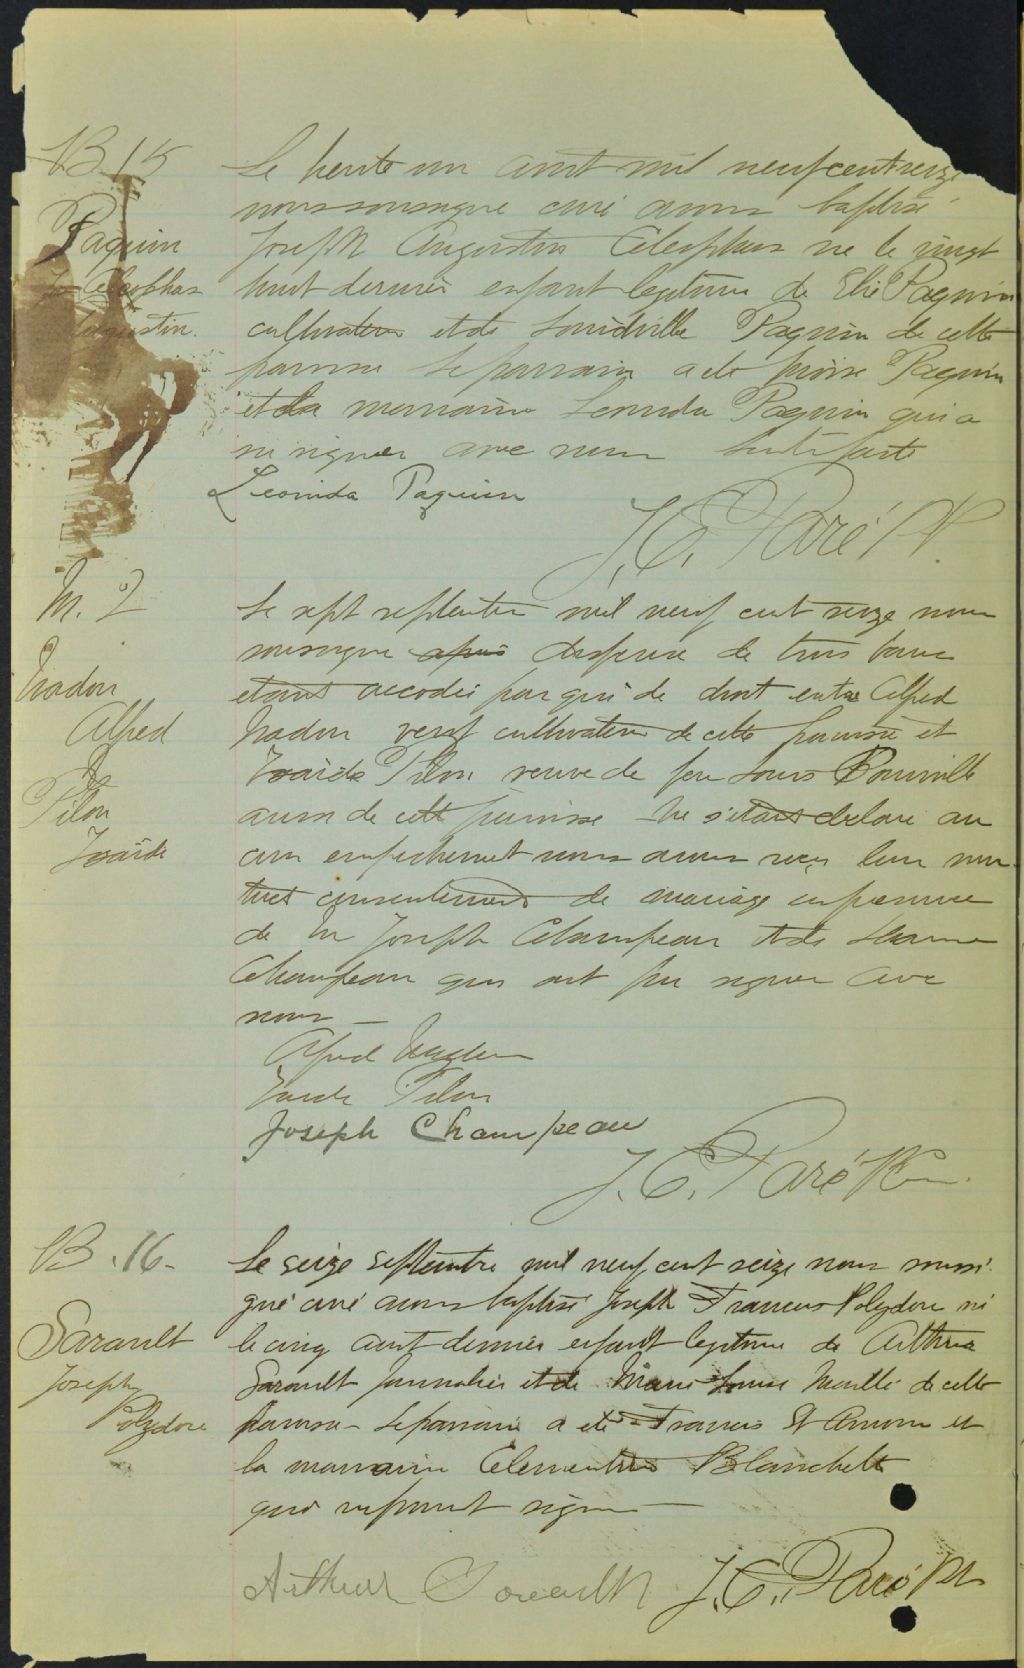 B 15
Le trente un aout mil neuf cent seize
nous sousigne curé avons baptisé
Paquin
Joseph Augustin Cleophas ne le vingt
Jos Cleophas
huit dernier enfant legitime de Elie Paquin
Augustin.
cultivateur et de Paquin de cette
paroisse le parrain a ete Paquin
et la marraine Leonida Paquin qui a
su signer avec nous
Leonida Paquin
J. C. Paré Ptr
M. 2
Le sept septembre mil neuf cent seize nous
sousigne apres dispense de trois bans
Nadon
etant accordee par qui de droit entre Alfred
Alfred
Nadon veuf cultivateur de cette paroisse et
Pilon
Zoaide Pilon veuve de feu Louis
Zoaide
aussi de cette paroisse Ne s'etant declaré au
cun empechement nous avons reçu leur mu
tuel consentement de mariage en presence
de Joseph Champeau et de
Champeau qui ont pu signer avec
nous
Alfred Nadon
Zoaide Pilon
Joseph Champeau
J. C. Paré Ptr
B. 16.
Le seize septembre mil neuf cent seize nous soussi
gné curé avons baptisé Joseph Francois Polydore né
Sarault
le cinq aout dernier enfant legitime de Arthur
Joseph
Sarault journalier et de Marie Louise de cette
Polydore
paroisse - le parrain a ete Francois St Amour et
la marraine Clementine Blanchette
qui signer
Arthur Sarault J. C. Paré Ptr